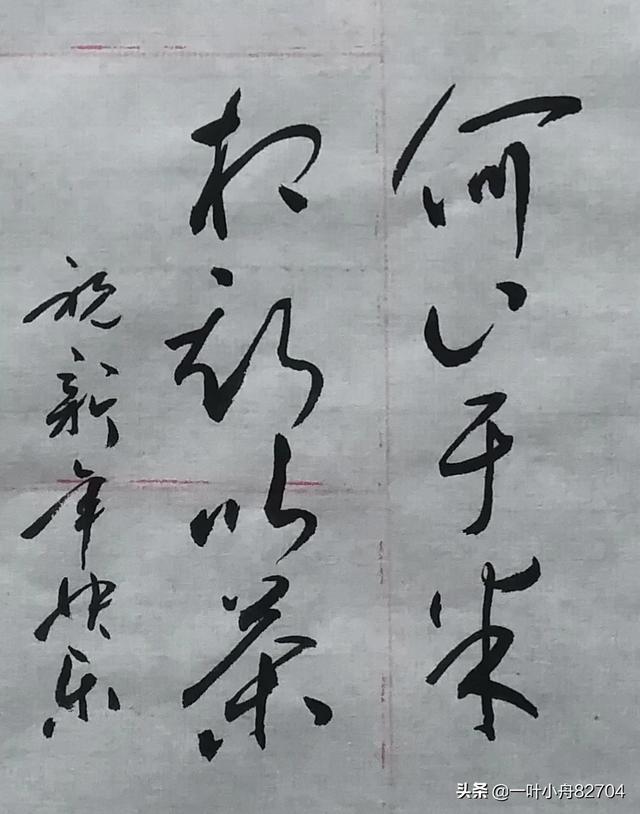 何止于米
相期以茶
祝新年快乐
头条 @一叶小舟82704